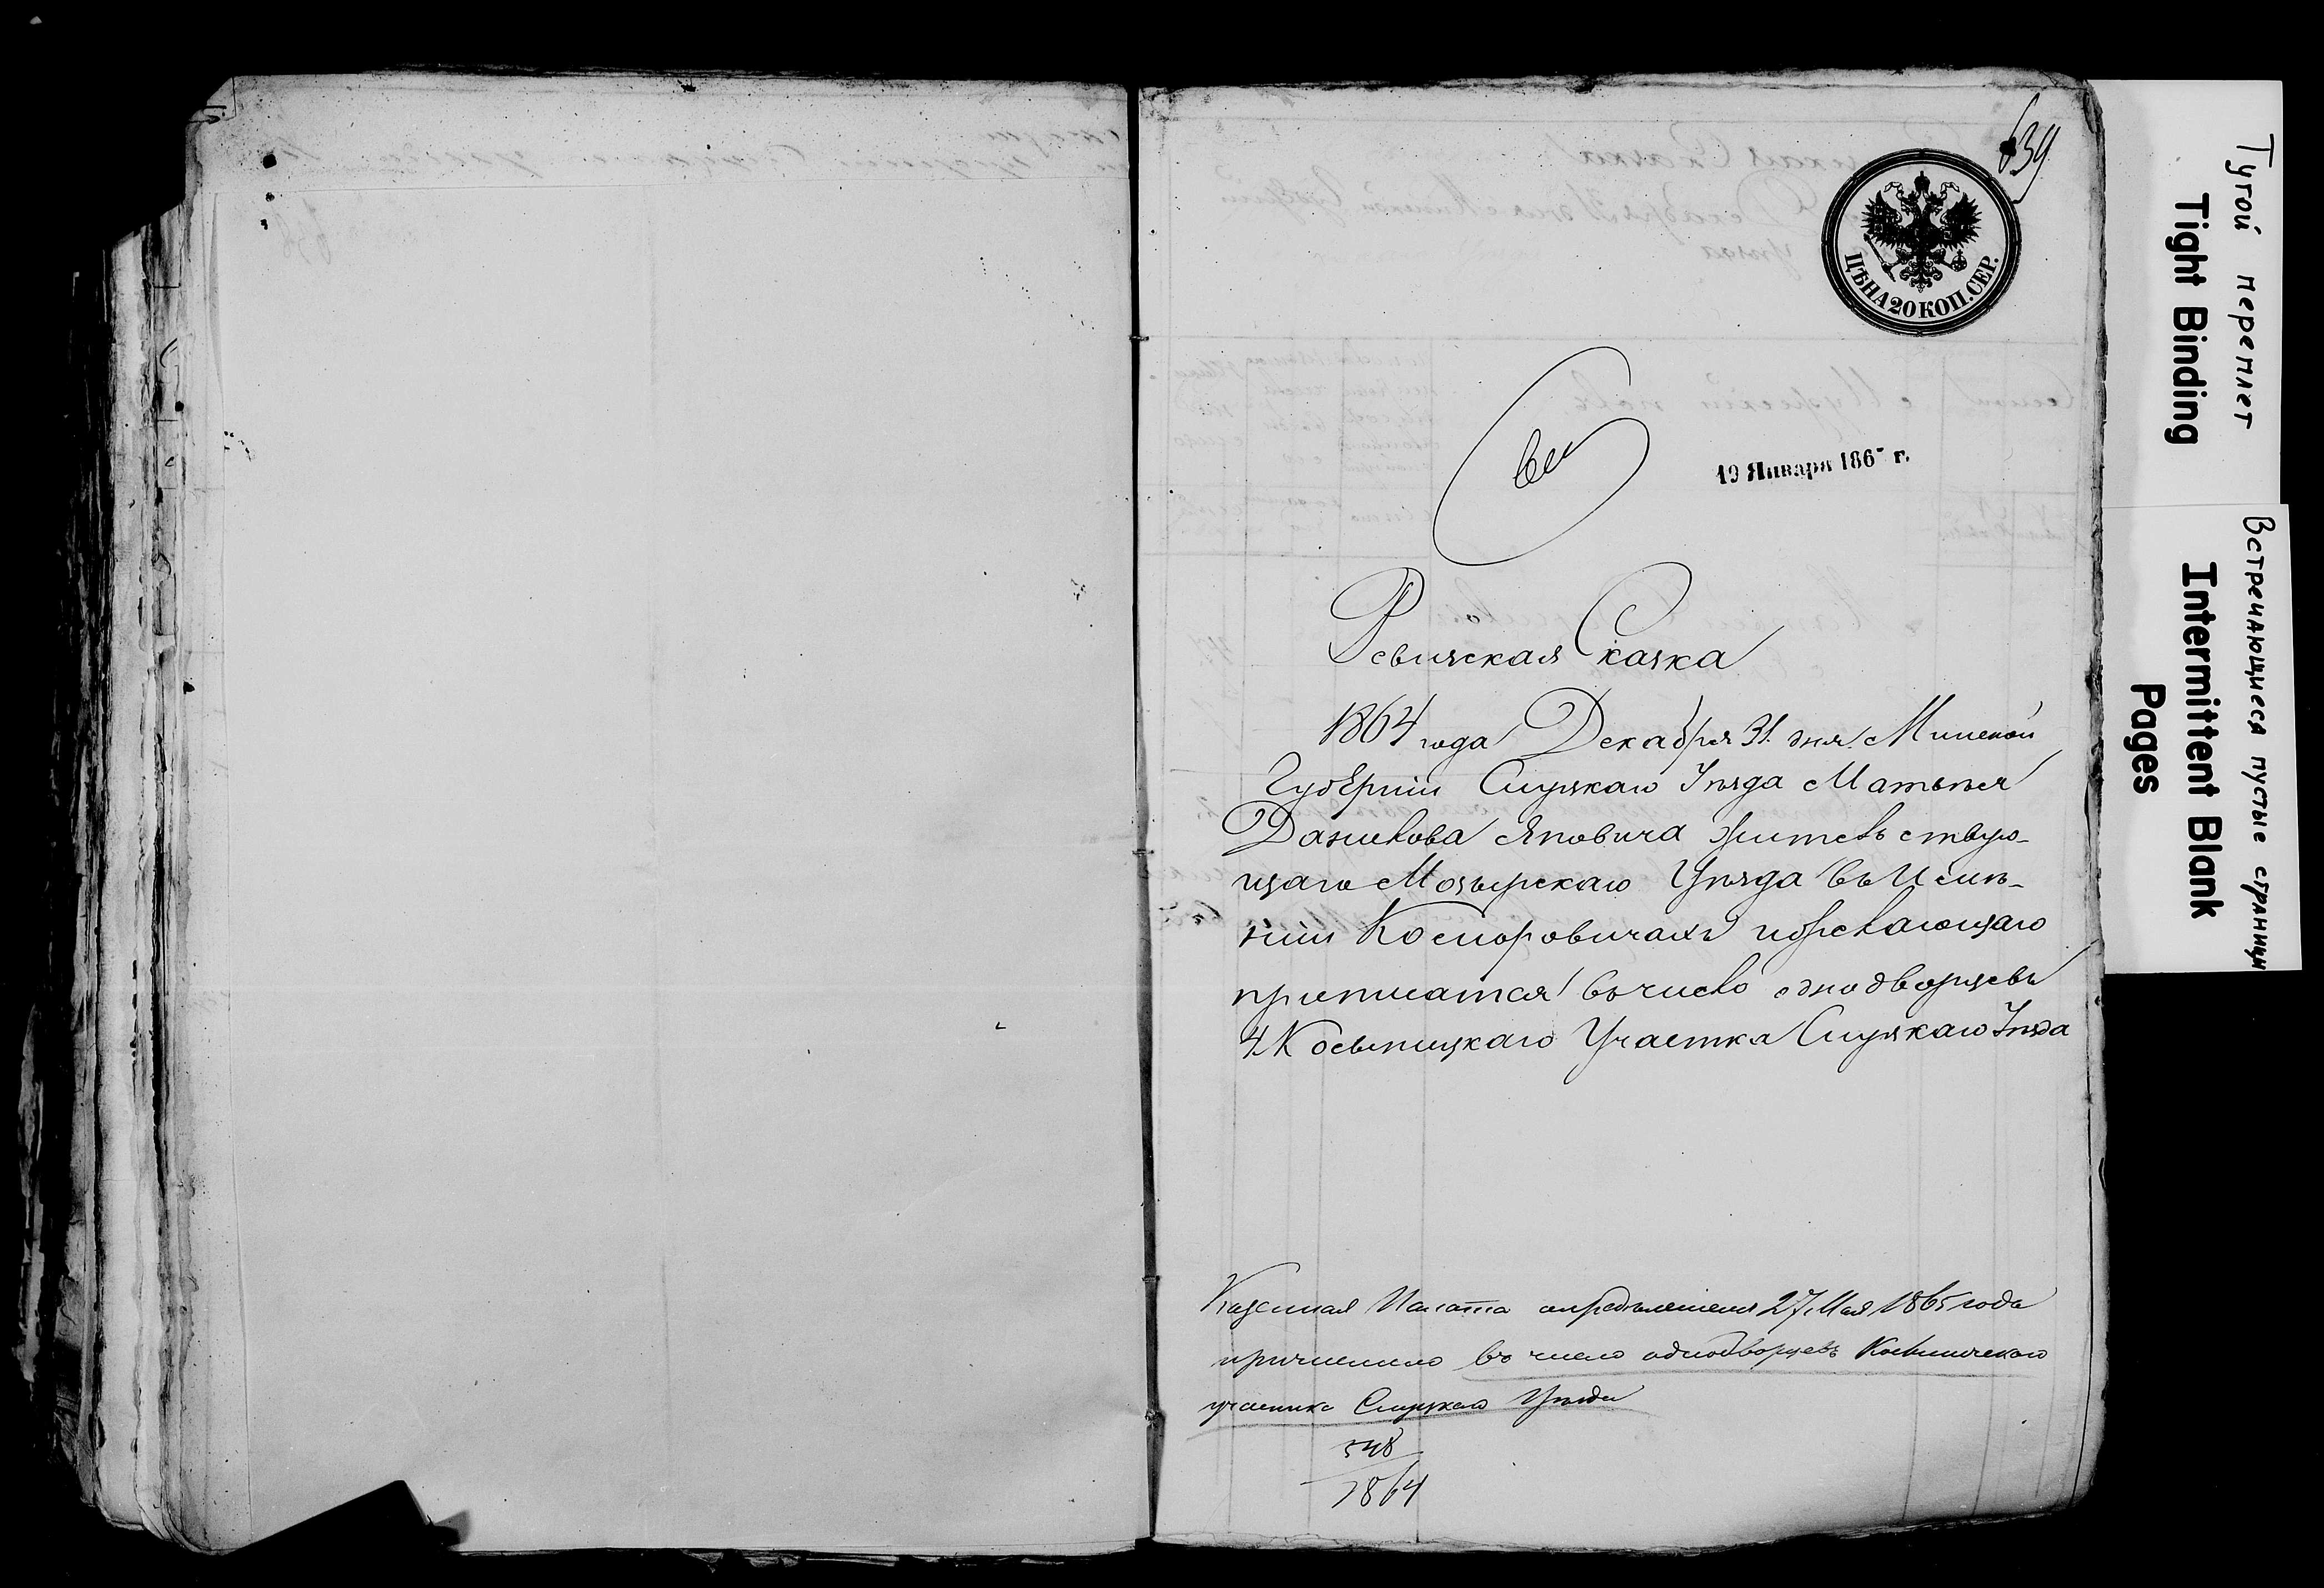 639
ЦѢНА 20 КОП. СЕР.
19 Января 186 г.
Ревизская Сказка
1864 года Декабря 31 дня Минской
Губерніи Слуцкаго Уѣзда Матвѣя
Данилова Яновича жительствую-
щаго Мозырскаго Уѣзда въ Имѣ-
ніи Костюровичахъ
приписатся въ число однодворцевъ
4 Участка Слуцкаго Уѣзда
Казенная Палата опредѣленіемъ 27 Мая 1865 года
причислила въ число однодворцевъ
участка Слуцкаго Уѣзда
548
1864
Тугой переплет
Tight Binding
Встречающиеся пустые страницы
Intermittent Blank
Pages